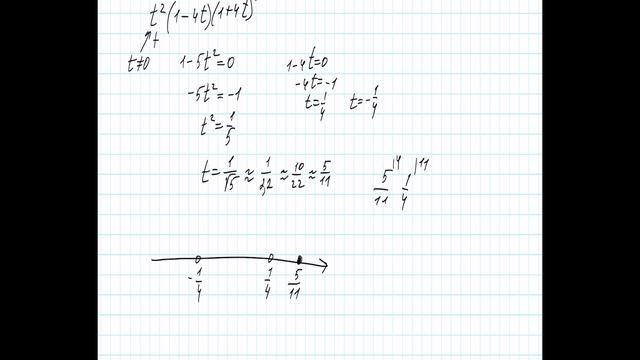 t²(1-4t)(1+4t)
t
t≠0 1-5t²=0 1-4t=0
-5t²=-1 -4t=-1
t²=1/5 t=1/4 t=-1/4
t=1/√5≈1/2,2≈10/22≈5/11 5/11 |4 1/4 |11
-1/4 1/4 5/11